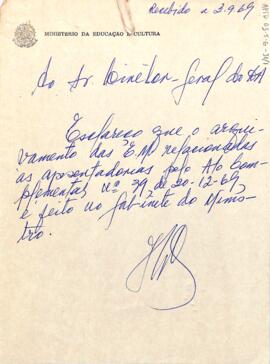 Recebido a 3.9.69
MINISTÉRIO DA EDUCAÇÃO E CULTURA
Ao Sr. Diretor-Geral do DA
Esclareço que o arqui-
vamento das E.M. relacionadas
às aposentadorias pelo Ato Com-
plementar nº 39 de 20-12-69
é feito no Gabinete do Minis-
tro.